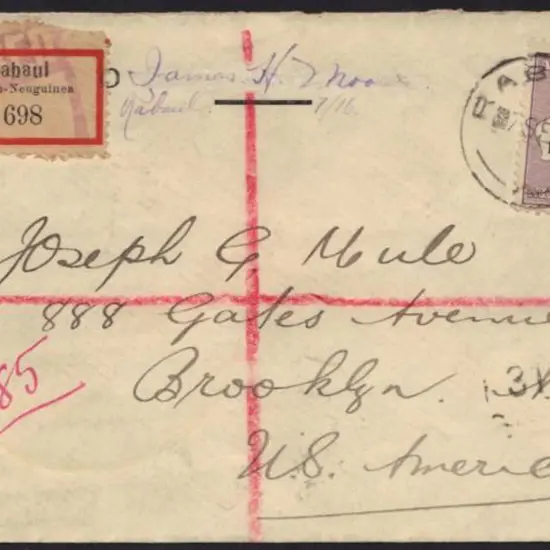 Rabaul
-Neuguinea
698
O
James H. Moore
Rabaul 7/16
RABA
Joseph G Mule
888 Gates Avenue
85
Brooklyn.
3
U.S. Americ